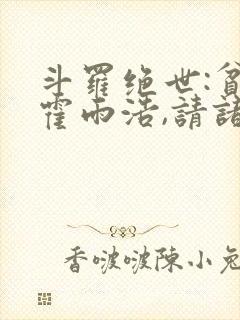 斗羅绝世:貧
霍雨浩,請諸
香啵啵陳小兔